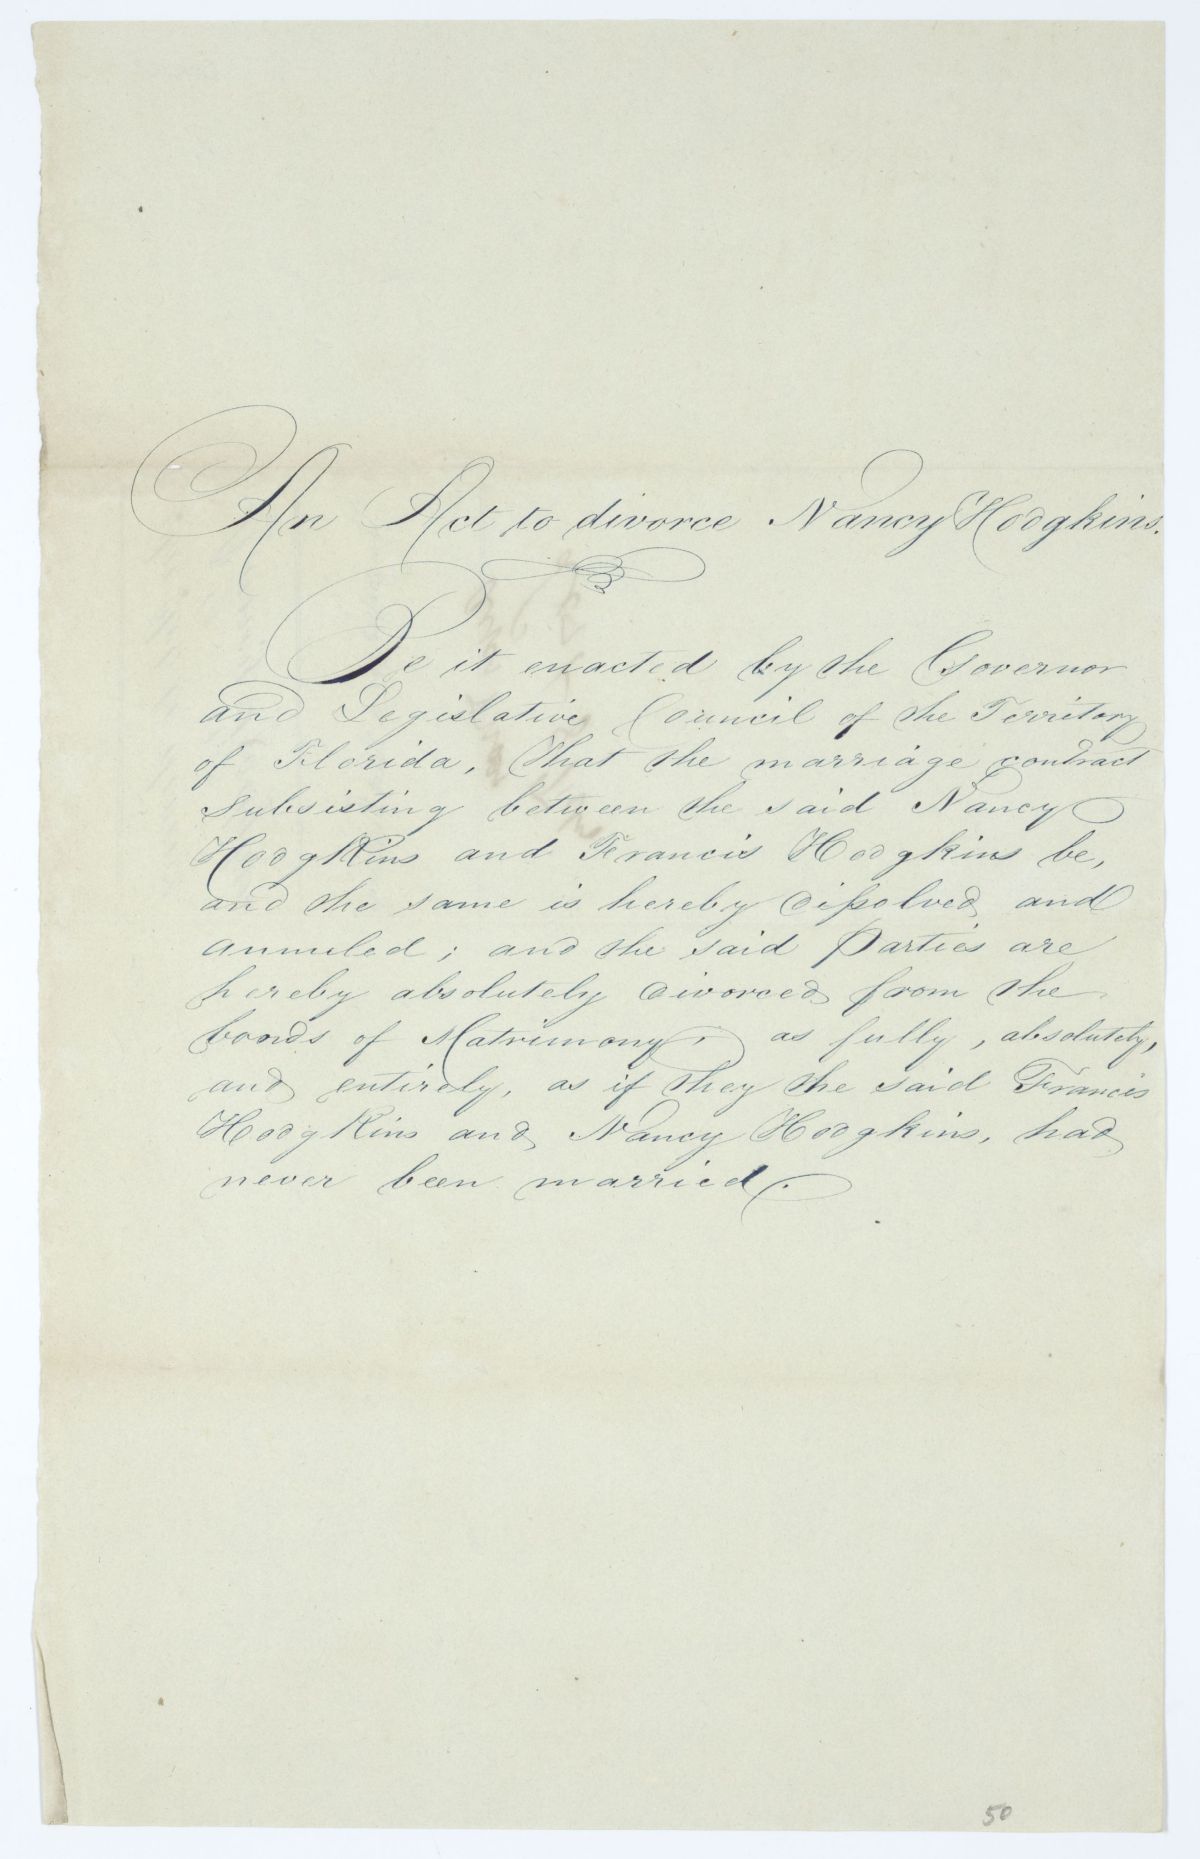 An Act to divorce Nancy Hodgkins.
Be it enacted by the Governor
and Legislative Council of the Territory
of Florida, That the marriage contract
subsisting between the said Nancy
Hodgkins and Francis Hodgkins be,
and the same is hereby dissolved and
annuled; and the said Parties are
hereby absolutely divorced from the
bonds of Matrimony, as fully, absolutely,
and entirely, as if they the said Francis
Hodgkins and Nancy Hodgkins, had
never been married.
50